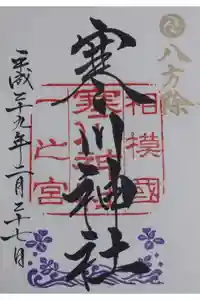 八方除
相模國
一之宮
寒川神社
平成二十九年二月二十七日